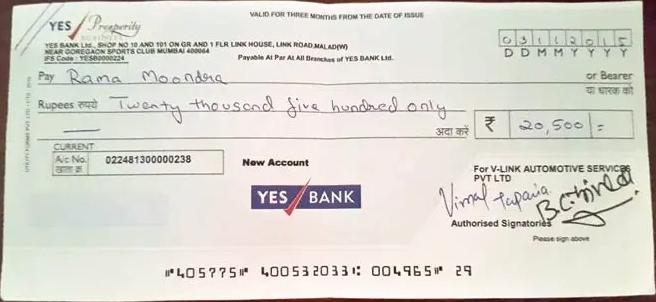 VALID FOR THREE MONTHS FROM THE DATE OF ISSUE
YES Prosperity
BUSINESS
03112015
DDMMYYYY
YES BANK Ltd., SHOP NO 10 AND 101 ON GR AND 1 FLR LINK HOUSE, LINK ROAD,MALAD(W)
NEAR GOREGAON SPORTS CLUB MUMBAI 400064
IFS Code : YESB0000224 Payable At Par At All Branches of YES BANK Ltd.
Pay Rama Moondra or Bearer
या धारक को
Rupees रुपये Twenty thousand five hundred only
अदा करें ₹ 20,500 =
CURRENT
A/c No. 022481300000238
खाता क्र
New Account
YES BANK
For V-LINK AUTOMOTIVE SERVICES
PVT LTD
Vimal Taparia
Authorised Signatories
Please sign above
⑈405775⑈ 400532033⑆ 004965⑈ 29